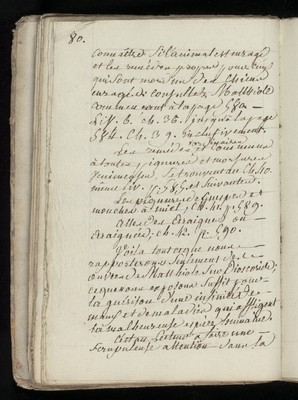 80.
connaitre si l'animal est enragé
et les remedes propres pour ceux
qui sont mordus des chiens
enragés consultez Matthiole
commencant à la page 580
Liv. 6. ch. 36. jusqu'a la page
584. Ch. 39. inclusivement.
Les remedes communs
à toutes piqures et morsures
venimeuses se trouvent au ch. 40.
même liv. p. 785 et suivantes.
Les piqures de Guepes et
mouches à miel, ch. 41. p. 589.
celles des araignées, ou
araignées, ch. 42. p. 590.
Voila tout ce que nous
rapporterons de
Matthiole sur Dioscoride,
ce que nous exposons suffit pour
la guérison d'une infinité de
maux et de maladies qui affligent
la malheureuse espece humaine
c'est au Lecteur a faire une
scrupuleuse attention dans la